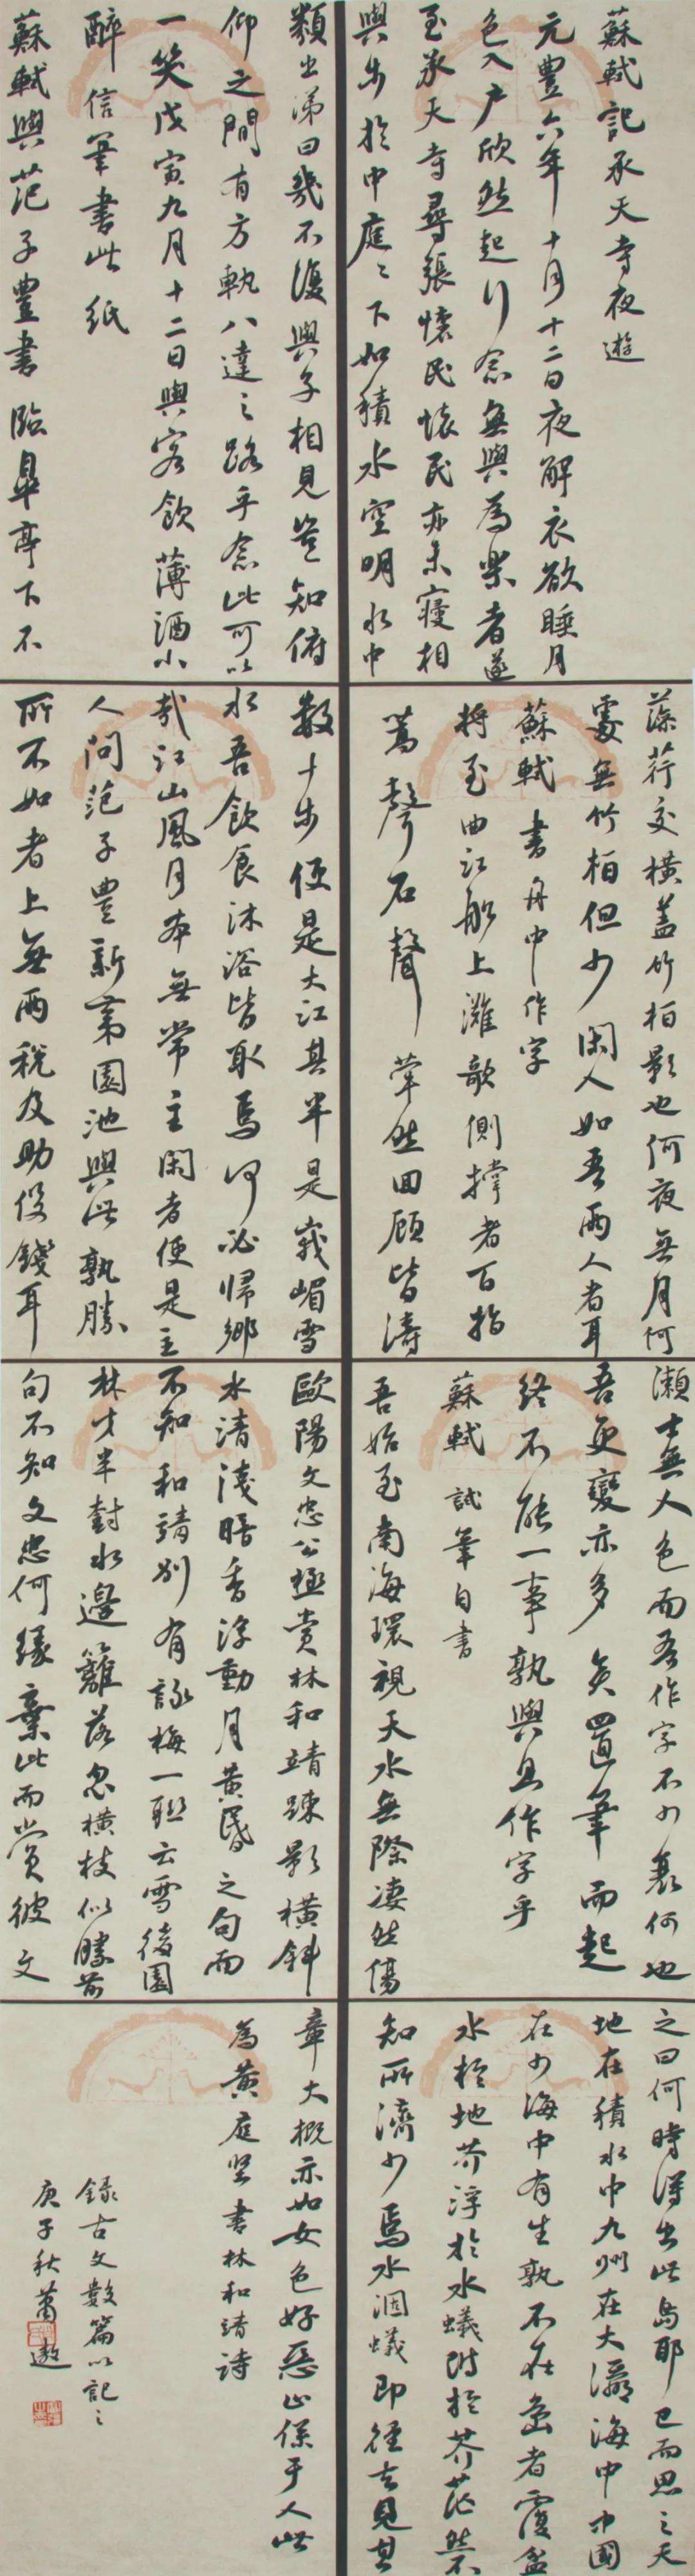 蘇軾記承天寺夜遊
元豐六年十月十二日夜解衣欲睡月
色入户欣然起行念無與為樂者遂
至承天寺尋張懷民懷民亦未寢相
與步於中庭〻下如積水空明水中
藻荇交橫蓋竹柏影也何夜無月何
處無竹柏但少閑人如吾兩人者耳
蘇軾書舟中作字
將至曲江船上灘欹側撐者百指
篙聲石聲犖然回顧皆濤
瀨士無人色而吾作字不少衰何也
吾更變亦多矣置筆而起
終不能一事孰與且作字乎
蘇軾試筆自書
吾始至南海環視天水無際凄然傷
之曰何時得出此島耶已而思之天
地在積水中九州在大瀛海中中國
在少海中有生孰不在島者覆盆
水於地芥浮於水蟻附於芥茫然不
知所濟少焉水涸蟻即徑去見其
類出涕曰幾不復與子相見豈知俯
仰之間有方軌八達之路乎念此可以
一笑戊寅九月十二日與客飲薄酒小
醉信筆書此紙
蘇軾與范子豐書臨皋亭下不
數十步便是大江其半是峨嵋雪
水吾飲食沐浴皆取焉何必歸鄉
哉江山風月本無常主閑者便是主
人問范子豐新第園池與此孰勝
所不如者上無兩稅及助役錢耳
歐陽文忠公極賞林和靖疎影橫斜
水清淺暗香浮動月黃昏之句而
不知和靖別有詠梅一聯云雪後園
林才半樹水邊籬落忽橫枝似勝前
句不知文忠何緣棄此而賞彼文
章大概亦如女色好惡止係于人此
為黃庭堅書林和靖詩
錄古文數篇以記之
庚子秋蕭遨